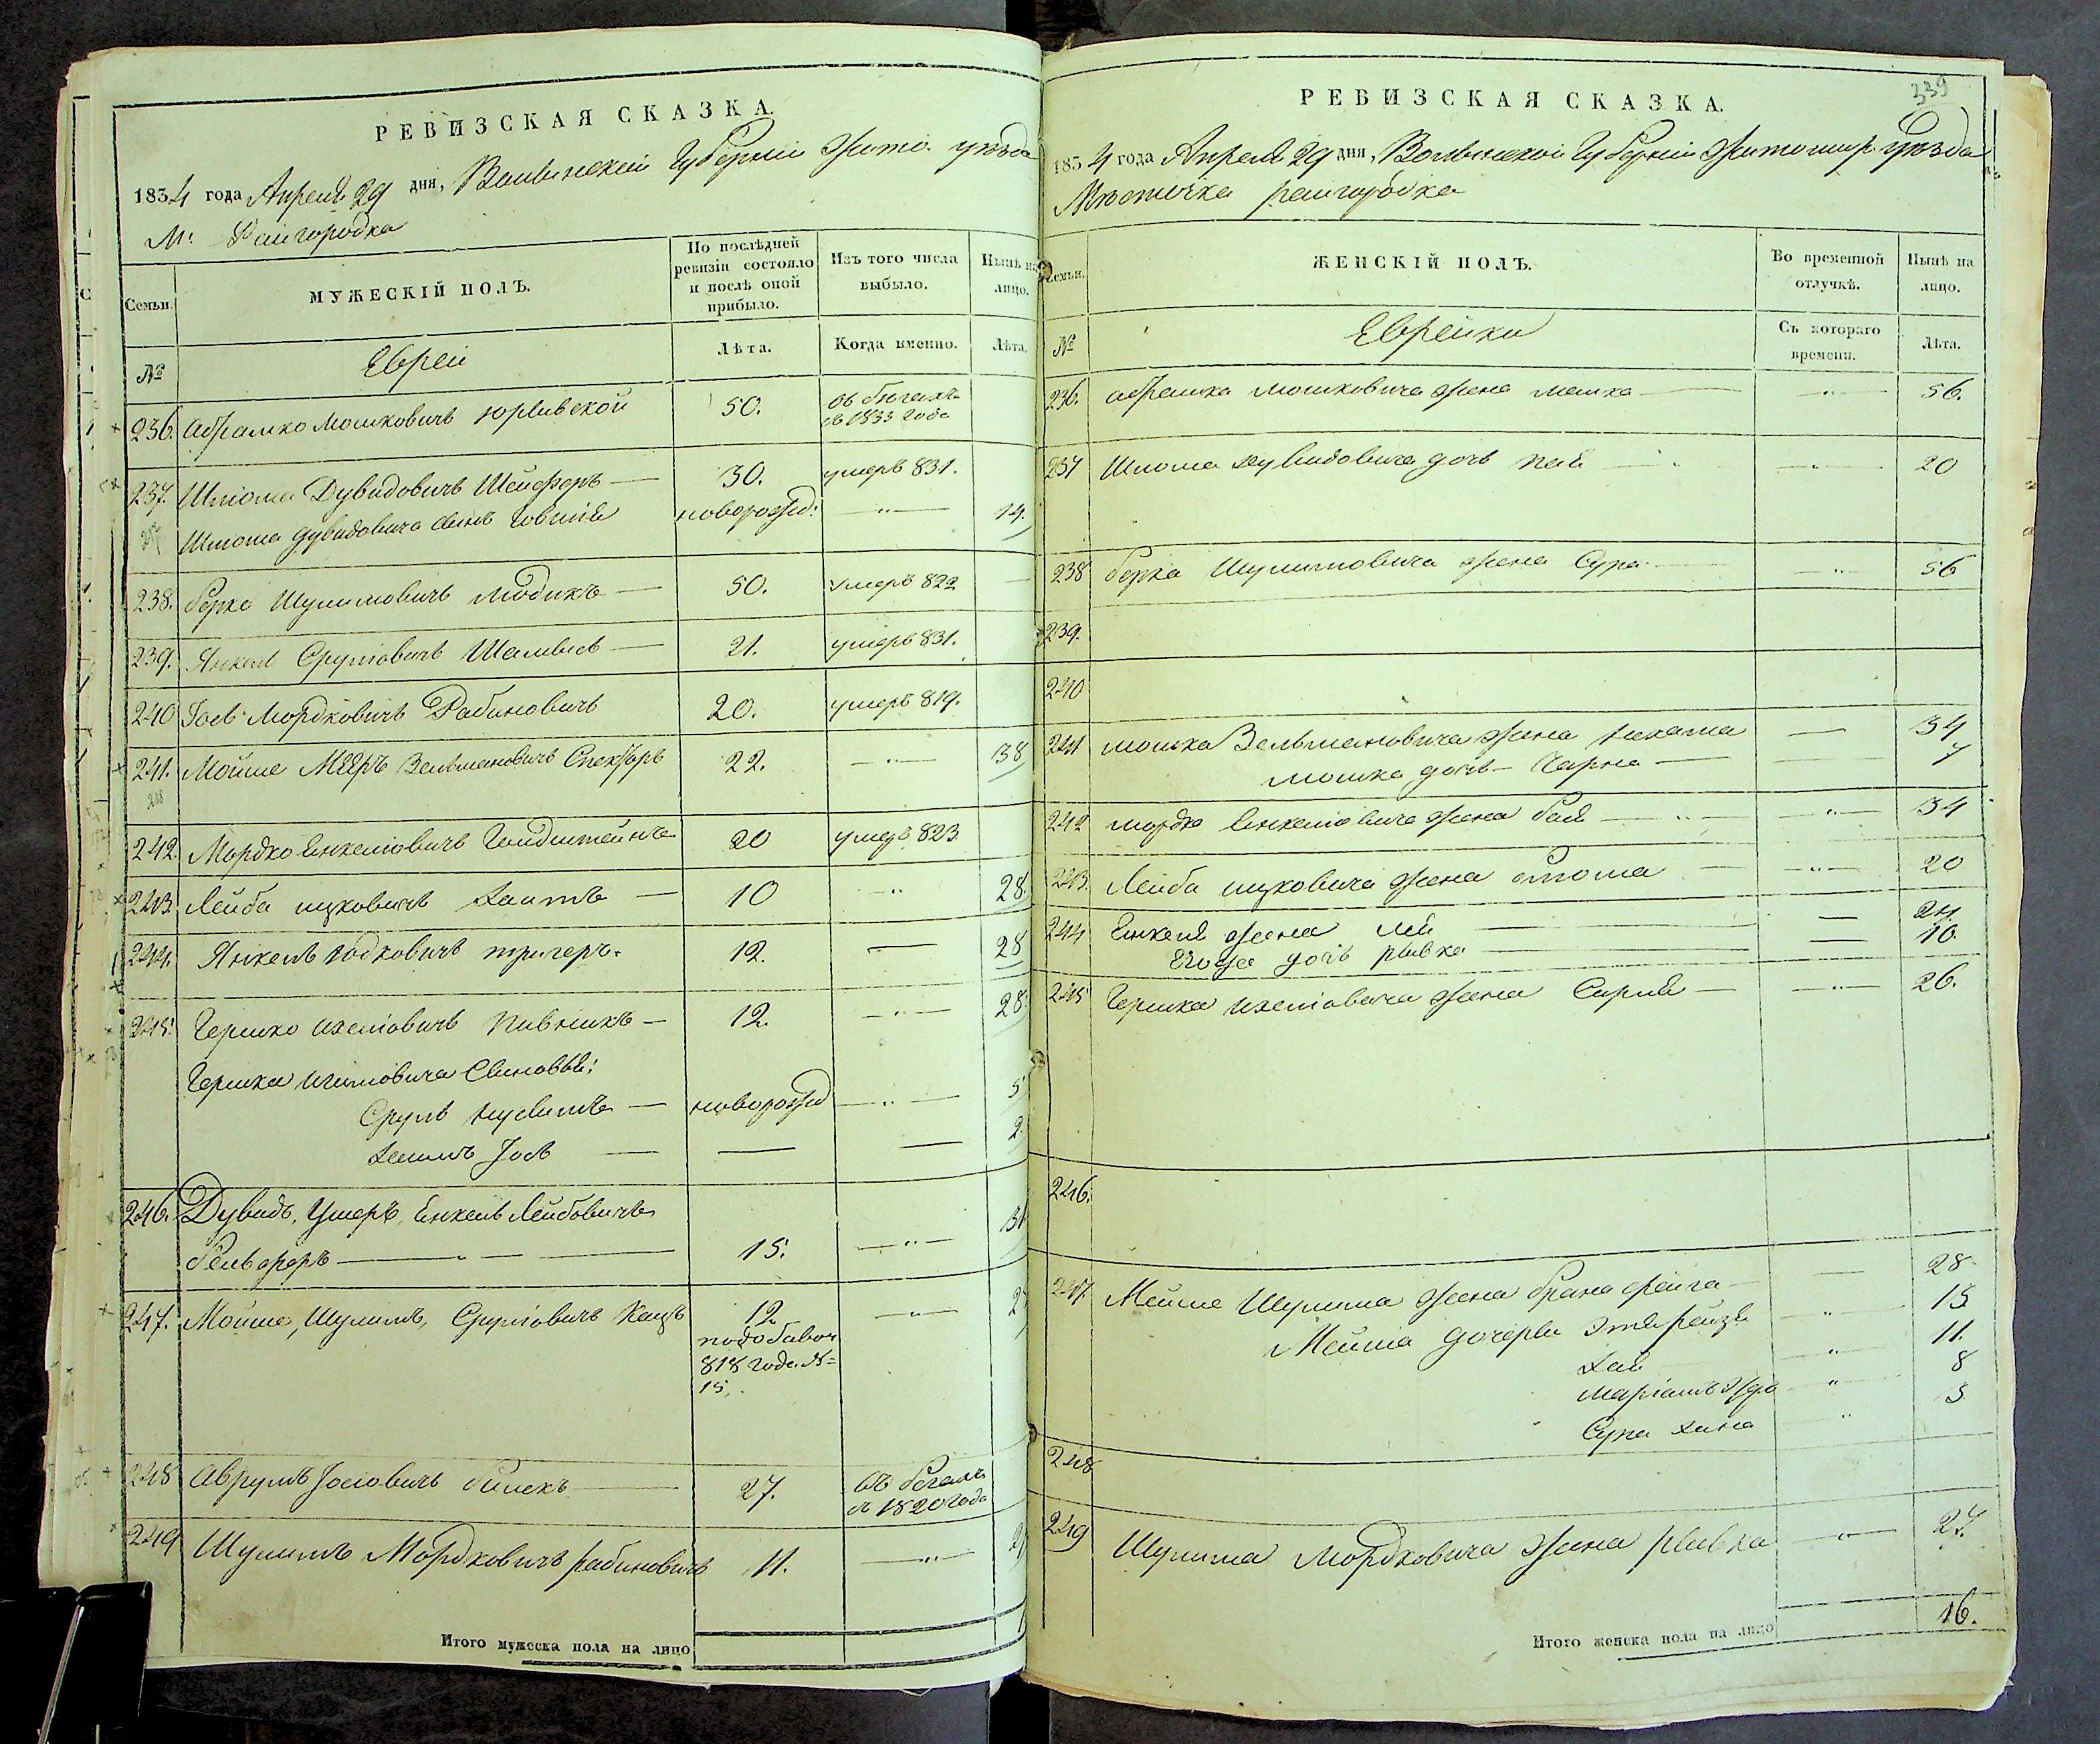 РЕВИЗСКАЯ СКАЗКА.
1834 года Апреля 29 дня, Волынской Губерніи Жито. уезда
М: Райгородка
Семьи.
МУЖЕСКІЙ ПОЛЪ.
По послѣдней ревизіи состояло и послѣ оной прибыло.
Изъ того числа выбыло.
Нынѣ на лицо.
№
Евреи
Лѣта.
Когда именно.
Лѣта.
236. Абрамко Мошковичъ 50. въ бегахъ
съ 1833 года
237. Шліома Дувидовичъ Шейферъ — 30. умеръ 831.
Шлиома Дувидовича сынъ новорожд: — " — 14.
238. Берко Шулимовичъ — 50. умеръ 822
239. Янкель Сруліовичъ — 21. умеръ 831.
240 Іось Мордковичъ Рабиновичъ 20. умеръ 819.
241. Мойше Мееръ Зельмановичъ Спекторъ 22. — " — 38
242. Мордко Янкеліовичъ Голдштейнъ 20 умеръ 823
243. Лейба ицковичъ — 10 — " 28.
244. Янкель Іосковичъ 12. — 28
245. Гершко Пивникъ — 12. — " — 28.
Гершка Сыновья:
Сруль — новорожд — " — 5
Хаимъ Іось — — — 2.
246. Дувидъ, Ушеръ, Янкель Лейбовичъ
— " — 15. — " —
247. Мойше, Шулимъ, Сруліовичъ Кацъ 12 — " —
818 года
15.
248 Аврумъ Іосіовичъ — 27. въ бегахъ
съ 1820 года
249 Шулимъ Мордковичъ рабиновичъ 11. — " —
Итого мужеска пола на лицо
339
РЕВИЗСКАЯ СКАЗКА.
1834 года Апреля 29 дня, Волынской Губерніи Житомир. уезда
Местечка райгородка
Семьи.
ЖЕНСКІЙ ПОЛЪ.
Во временной отлучкѣ.
Нынѣ на лицо.
№
Еврейки
Съ котораго времени.
Лѣта.
236. абрамка мошковича жена — — " — 56.
237 Шлиома дувидовича дочь — " — 20
238 берка Шулимовича жена Сура — — " — 56
239.
240
241 мошка Зельмановича жена — 34
мошка дочь — Чарна — 7
242 мордка Янкеліовича жена — " — — " — 34
243. Лейба ицковича жена — — " — 20
244 Янкеля жена — — 24.
Его же дочь рывка — — 10.
245 Гершка жена — — " — 26.
246.
247. Мейше Шулима жена брана фейга — — 28
дочери " 15
Хая " 11.
маріамъ " 8
Сура Хина " 5
248
249 Шулима Мордковича жена рывка — " — 27.
Итого женска пола на лицо 16.